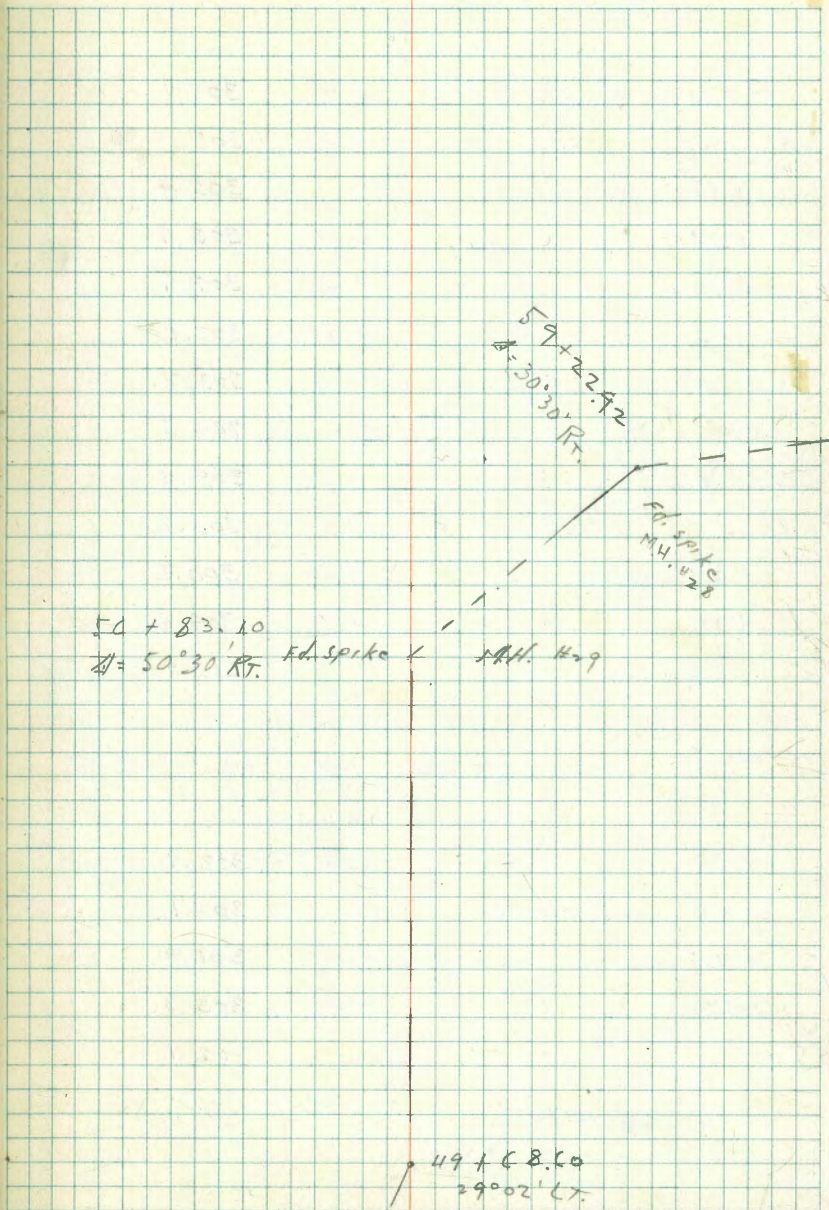 59+22.92
Δ=30°30' RT.
Fd. spike
M.H. #28
56 + 83.10
Δ= 50°30' RT. Fd. spike M.H. #29
49 + 68.60
29°02' LT.